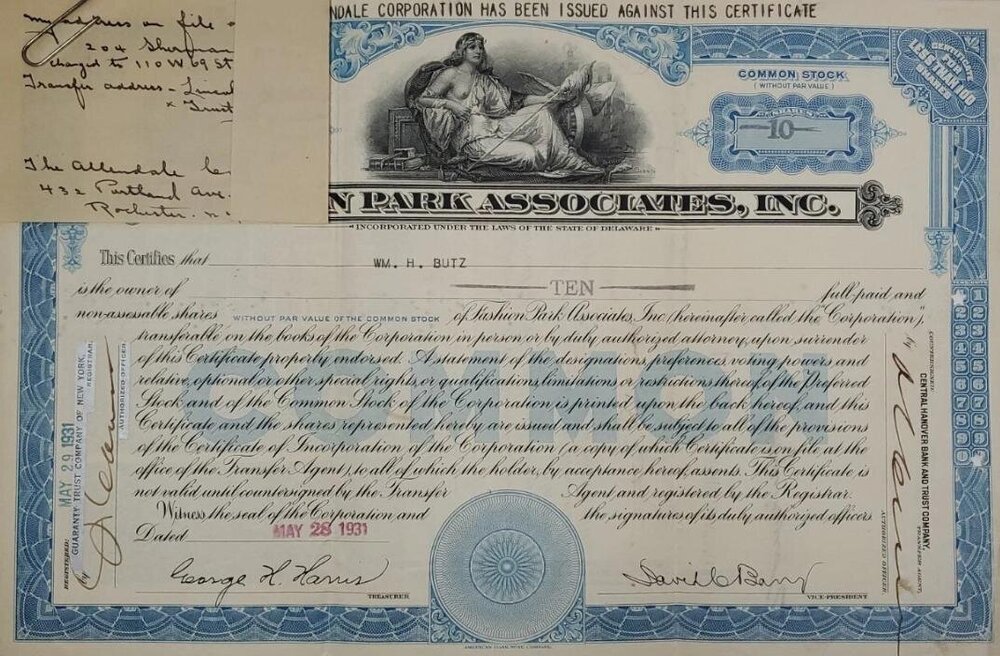 my address on file
204 Sherman
changed to 110 W 69 St
Transfer address -
Trust
The Allendale
432 Portland Ave.
Rochester. N.
NDALE CORPORATION HAS BEEN ISSUED AGAINST THIS CERTIFICATE
COMMON STOCK
(WITHOUT PAR VALUE)
10
CERTIFICATE FOR LESS THAN 100 SHARES
N PARK ASSOCIATES, INC.
INCORPORATED UNDER THE LAWS OF THE STATE OF DELAWARE
This Certifies that WM. H. BUTZ
is the owner of TEN full paid and
non-assessable shares WITHOUT PAR VALUE OF THE COMMON STOCK of Fashion Park Associates, Inc. (hereinafter called the "Corporation"),
transferable on the books of the Corporation in person or by duly authorized attorney, upon surrender
of this Certificate properly endorsed. A statement of the designations, preferences, voting powers and
relative, optional or other special rights, or qualifications, limitations or restrictions thereof, of the Preferred
Stock and of the Common Stock of the Corporation is printed upon the back hereof, and this
Certificate and the shares represented hereby are issued and shall be subject to all of the provisions
of the Certificate of Incorporation of the Corporation (a copy of which Certificate is on file at the
office of the Transfer Agent), to all of which the holder, by acceptance hereof, assents. This Certificate is
not valid until countersigned by the Transfer Agent and registered by the Registrar.
Witness the seal of the Corporation and the signatures of its duly authorized officers
Dated MAY 28 1931
George H. Harris
TREASURER
VICE-PRESIDENT
COMMON
REGISTERED:
MAY 29 1931
GUARANTY TRUST COMPANY OF NEW YORK,
REGISTRAR.
by
AUTHORIZED OFFICER
COUNTERSIGNED:
CENTRAL HANOVER BANK AND TRUST COMPANY,
TRANSFER AGENT,
by
AUTHORIZED OFFICER
1 1
2 2
3 3
4 4
5 5
6 6
7 7
8 8
9 9
0
AMERICAN BANK NOTE COMPANY.